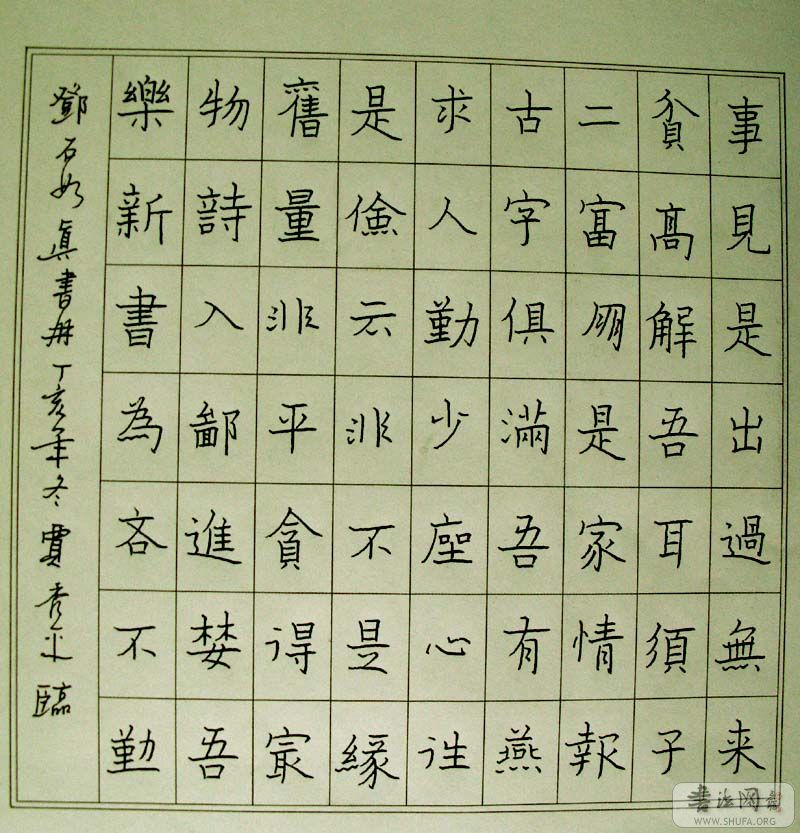 事見是出過無来
貧髙解吾耳須子
二富朙是家情報
古字俱滿吾有燕
求人勤少座心
是儉云非不是緣
舊量非平貪得㝡
物詩入鄙進婪吾
樂新書為吝不勤
鄧石如眞書冊丁亥年冬賈秀臨
書法网
WWW.SHUFA.ORG